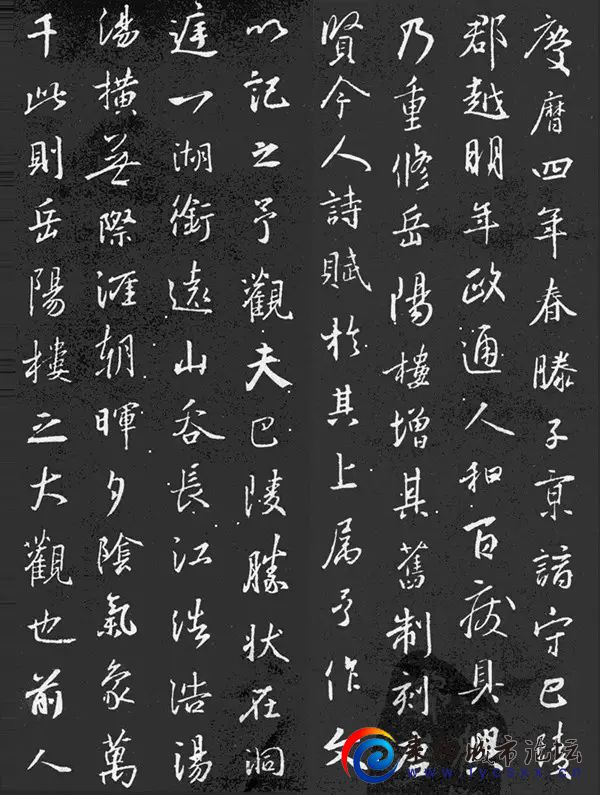 慶曆四年春滕子京謫守巴陵
郡越明年政通人和百廢具興
乃重修岳陽樓增其舊制刻唐
賢今人詩賦於其上属予作文
以記之予觀夫巴陵勝狀在洞
庭一湖銜遠山吞長江浩浩湯
湯橫無際涯朝暉夕陰氣象萬
千此則岳陽樓之大觀也前人
城市论坛